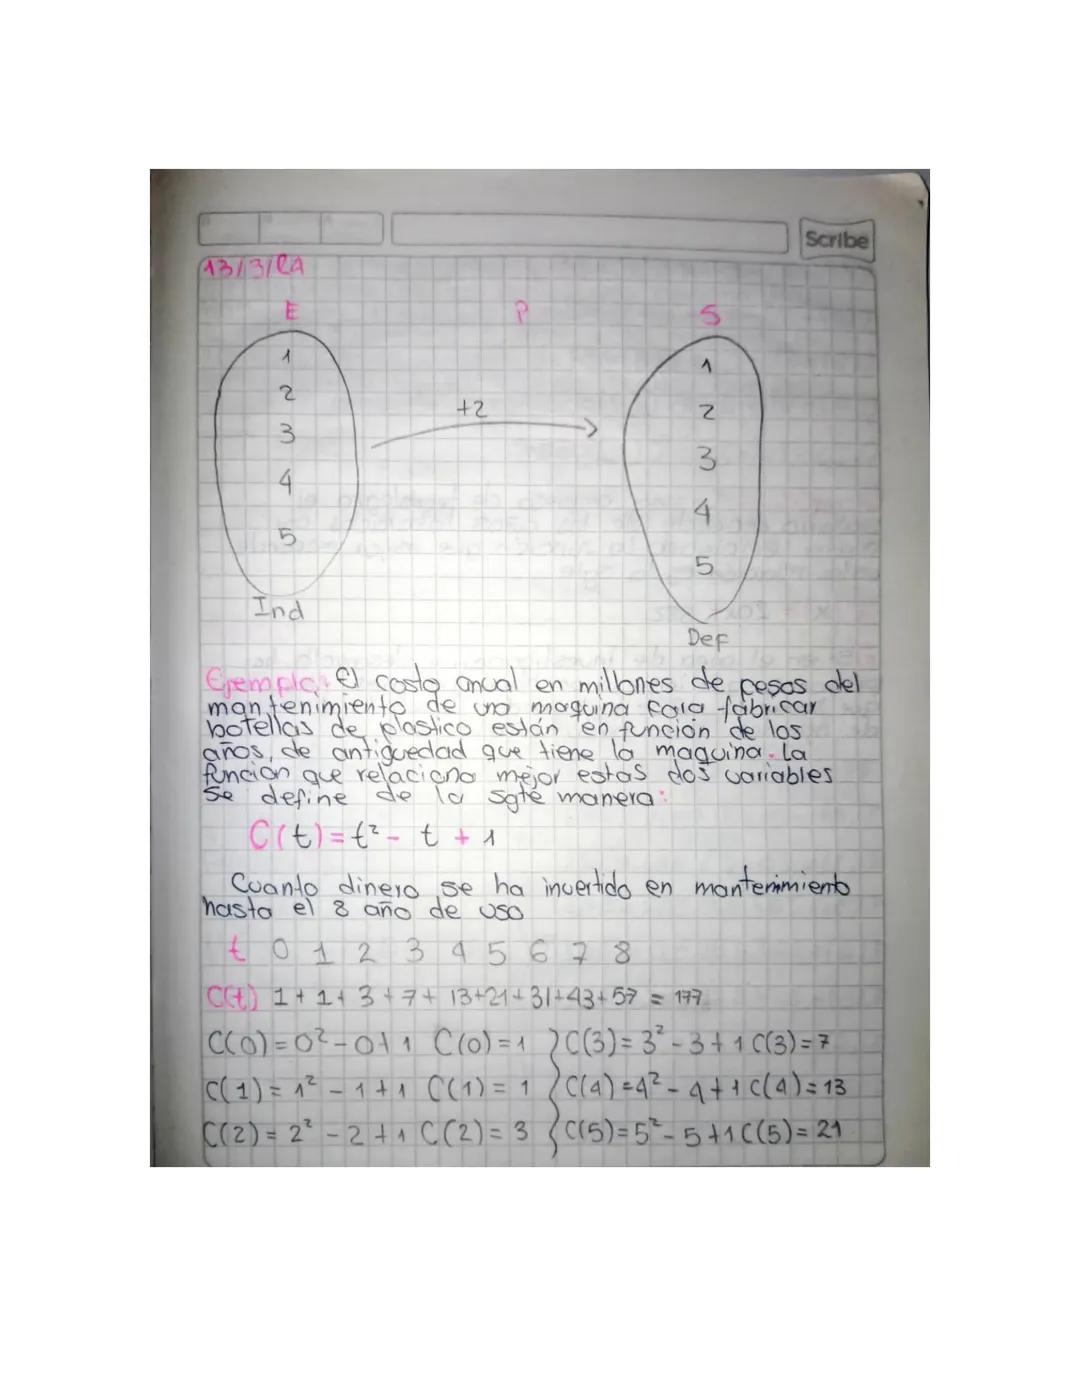 Scribe
13/3/24
E P S
1 1
2 2
+2
3 3
4 4
5 5
Ind
Def
Ejemplo: El costo anual en millones de pesos del
mantenimiento de una maquina para fabricar
botellas de plastico están en función de los
años, de antiguedad que tiene la maquina. La
función que relaciona mejor estas dos variables
se define de la sgte manera:
C(t) = t² - t + 1
Cuanto dinero se ha invertido en mantenimiento
hasta el 8 año de uso
t 0 1 2 3 4 5 6 7 8
C(t) 1+1+3+7+13+21+31+43+57 = 177
C(0)=0²-0+1 C(0)=1 } C(3)=3²-3+1 C(3)=7
C(1)=1²-1+1 C(1)=1 } C(4)=4²-4+1 C(4)=13
C(2)=2²-2+1 C(2)=3 { C(5)=5²-5+1 C(5)=21